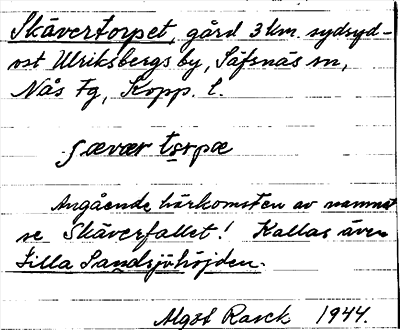 Skävertorpet, gård 3 km. sydsyd-
ost Ulriksbergs by, Säfsnäs sn,
Nås Fg, Kopp. l.
ʃævær tɔrpæ
Angående härkomsten av namnet
se Skäverfallet! Kallas även
Lilla Sandsjöhöjden.
Algot Rasck 1944.